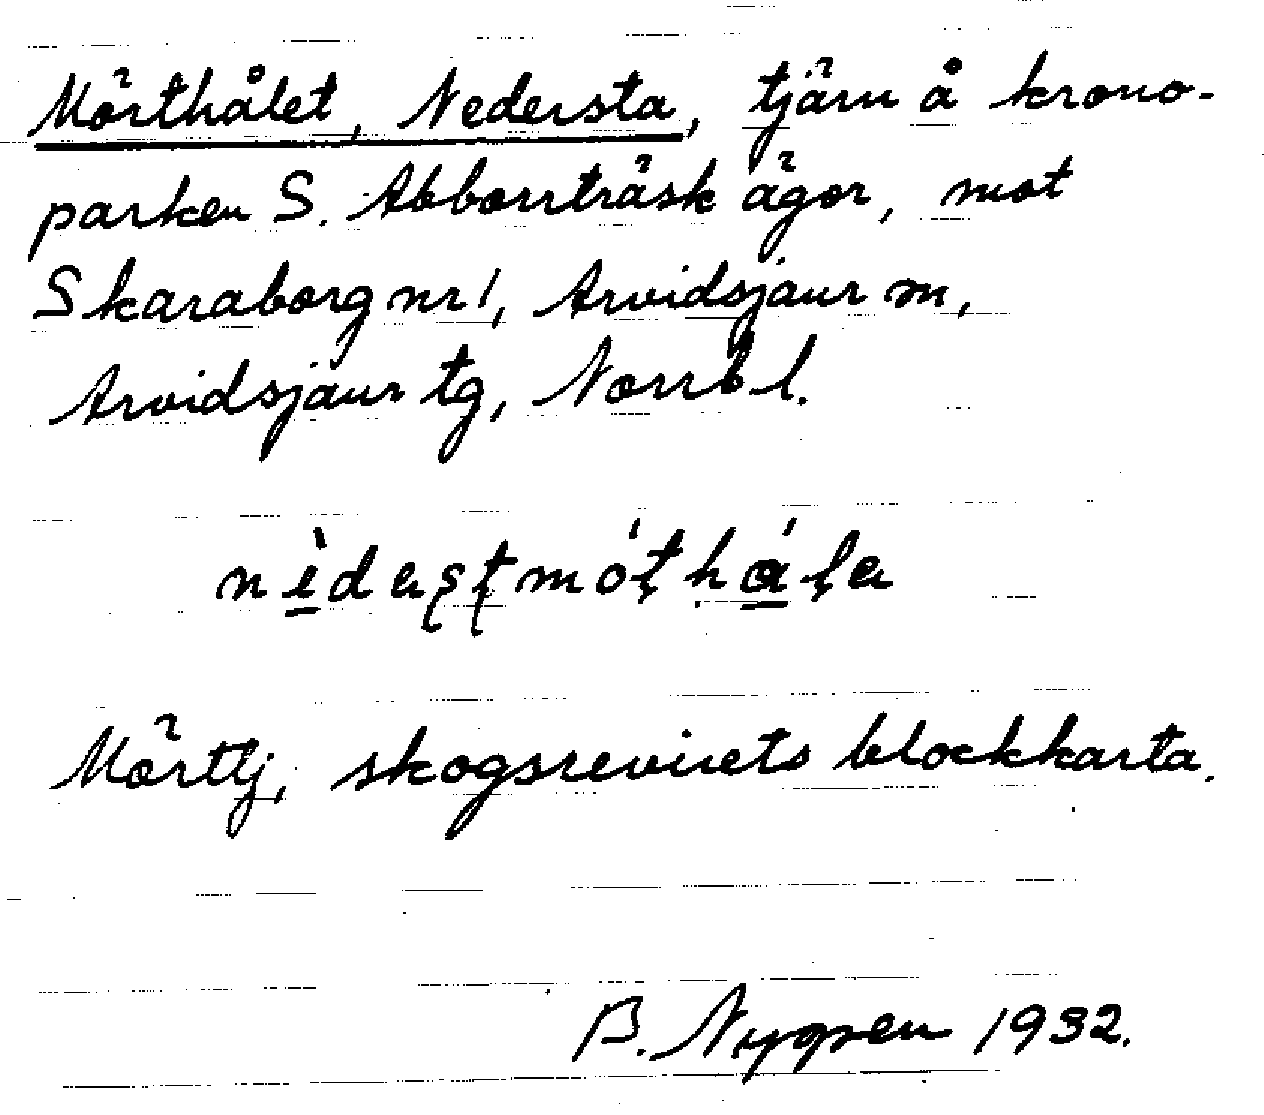 Mörthålet, Nedersta, tjärn å krono-
parken S. Abborrträsk ägor, mot
Skaraborg nr 1, Arvidsjaur sn,
Arvidsjaur tg, Norrb l.
Mörttj, skogsrevirets blockkarta.
B. 1932.